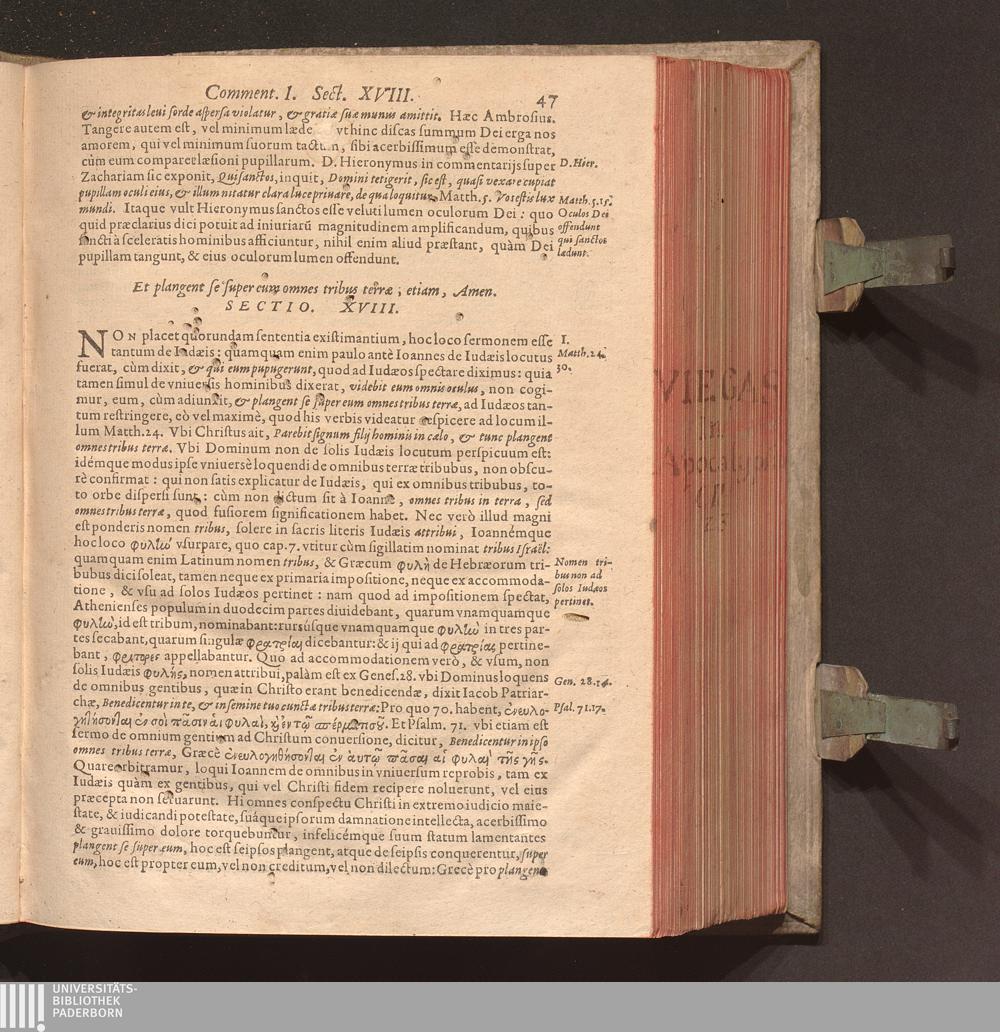 Comment. I. Sect. XVIII. 47
& integritas leui sorde aspersa violatur, & gratiæ suæ munus amittit. Hæc Ambrosius.
Tangere autem est, vel minimum læde vt hinc discas summum Dei erga nos
amorem, qui vel minimum suorum tactum, sibi acerbissimum esse demonstrat,
cùm eum comparet læsioni pupillarum. D. Hieronymus in commentarijs super
Zachariam sic exponit, Qui sanctos, inquit, Domini tetigerit, sic est, quasi vexare cupiat
pupillam oculi eius, & illum nitatur clara luce priuare, de qua loquitur Matth. 5. Vos estis lux
mundi. Itaque vult Hieronymus sanctos esse veluti lumen oculorum Dei: quo
quid præclarius dici potuit ad iniuriarũ magnitudinem amplificandum, quibus
sancti à sceleratis hominibus afficiuntur, nihil enim aliud præstant, quàm Dei
pupillam tangunt, & eius oculorum lumen offendunt.
D. Hier.
Matth. 5. 15.
Oculos Dei
offendunt
qui sanctos
lædunt.
Et plangent se super eum omnes tribus terræ; etiam, Amen.
SECTIO. XVIII.
NON placet quorundam sententia existimantium, hoc loco sermonem esse
tantum de Iudæis: quamquam enim paulo antè Ioannes de Iudæis locutus
fuerat, cùm dixit, & qui eum pupugerunt, quod ad Iudæos spectare diximus: quia
tamen simul de vniuersis hominibus dixerat, videbit eum omnis oculus, non cogi-
mur, eum, cùm adiunxit, & plangent se super eum omnes tribus terræ, ad Iudæos tan-
tum restringere, eò vel maximè, quod his verbis videatur respicere ad locum il-
lum Matth. 24. Vbi Christus ait, Parebit signum filij hominis in cælo, & tunc plangent
omnes tribus terræ. Vbi Dominum non de solis Iudæis locutum perspicuum est:
idémque modus ipse vniuersè loquendi de omnibus terræ tribubus, non obscu-
rè confirmat: qui non satis explicatur de Iudæis, qui ex omnibus tribubus, to-
to orbe dispersi sunt: cùm non dictum sit à Ioanne, omnes tribus in terra, sed
omnes tribus terræ, quod fusiorem significationem habet. Nec verò illud magni
est ponderis nomen tribus, solere in sacris literis Iudæis attribui, Ioannémque
hoc loco φυλὼ vsurpare, quo cap. 7. vtitur cùm sigillatim nominat tribus Israël:
quamquam enim Latinum nomen tribus, & Græcum φυλὴ de Hebræorum tri-
bubus dici soleat, tamen neque ex primaria impositione, neque ex accommoda-
tione, & vsu ad solos Iudæos pertinet: nam quod ad impositionem spectat,
Athenienses populum in duodecim partes diuidebant, quarum vnamquamque
φυλὼ, id est tribum, nominabant: rursúsque vnamquamque φυλὼ in tres par-
tes secabant, quarum singulæ φρατρίαι dicebantur: & ij qui ad φρατρίας pertine-
bant, φράτορες appellabantur. Quo ad accommodationem verò, & vsum, non
solis Iudæis φυλῆς, nomen attribui, palàm est ex Genes. 28. vbi Dominus loquens
de omnibus gentibus, quæ in Christo erant benedicendæ, dixit Iacob Patriar-
chæ, Benedicentur in te, & in semine tuo cunctæ tribus terræ: Pro quo 70. habent, ἐνευλο-
γηθήσονται ἐν σοὶ πᾶσιν αἱ φυλαὶ, ϗ ἐν τῷ σπέρματι σοῦ. Et Psalm. 71. vbi etiam est
sermo de omnium gentium ad Christum conuersione, dicitur, Benedicentur in ipso
omnes tribus terræ, Græcè ἐνευλογηθήσονται ἐν αὐτῷ πᾶσαι αἱ φυλαὶ τῆς γῆς.
Quare arbitramur, loqui Ioannem de omnibus in vniuersum reprobis, tam ex
Iudæis quàm ex gentibus, qui vel Christi fidem recipere noluerunt, vel eius
præcepta non seruarunt. Hi omnes conspectu Christi in extremo iudicio maie-
state, & iudicandi potestate, suáque ipsorum damnatione intellecta, acerbissimo
& grauissimo dolore torquebuntur, infelicémque suum statum lamentantes
plangent se super eum, hoc est seipsos plangent, atque de seipsis conquerentur, super
eum, hoc est propter eum, vel non creditum, vel non dilectum: Grecè pro plangent
I.
Matth. 24.
30.
Nomen tri-
bus non ad
solos Iudæos
pertinet.
Gen. 28. 14.
Psal. 71. 17.
VIEGAS
In
Apocalypsi
UNIVERSITÄTS-
BIBLIOTHEK
PADERBORN